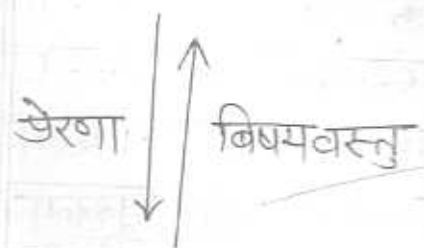 प्रेरणा विषयवस्तु